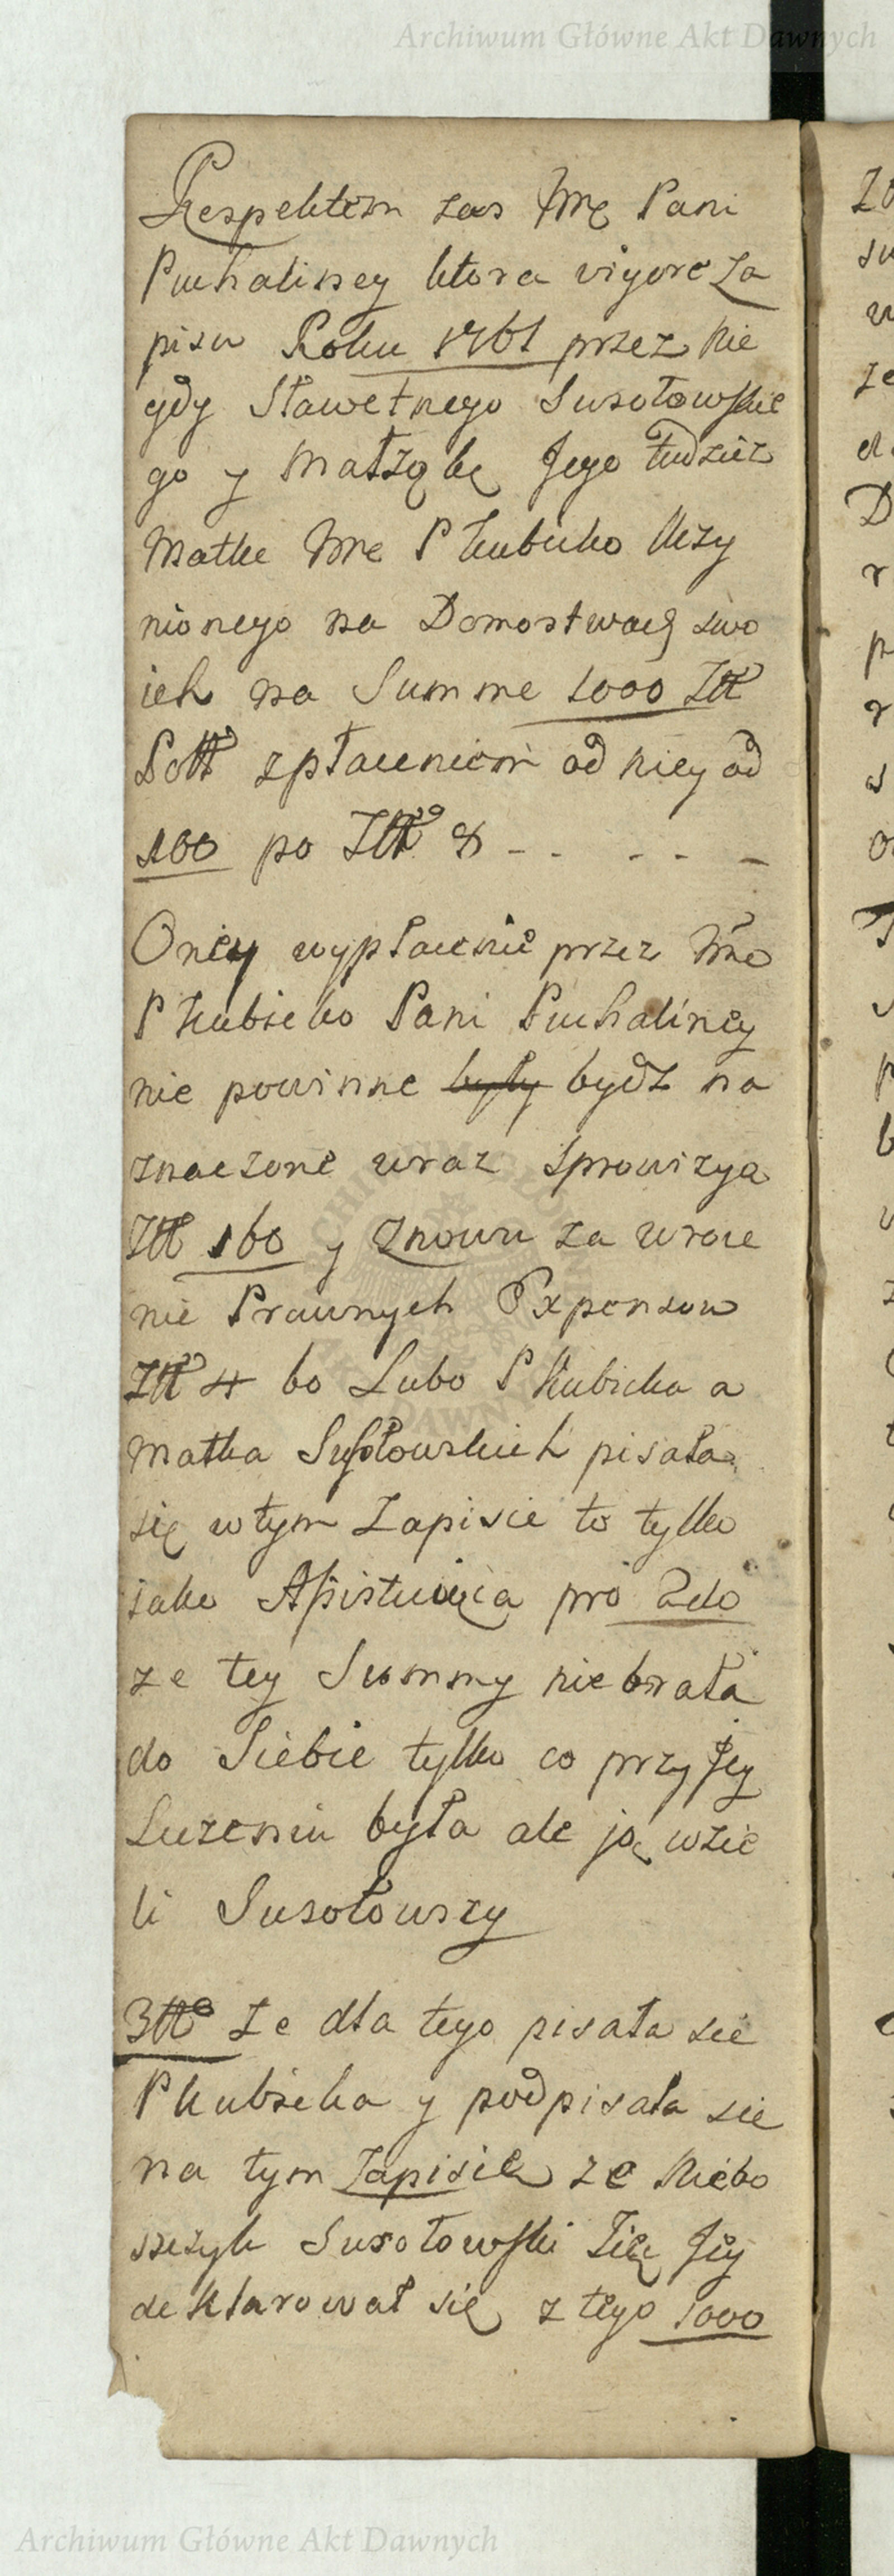 Archiwum Główne Akt Dawnych
Respektem zas Jmę Pani
Puchalskiey ktora vigore Za
pisu Roku 1761 przez Nie
gdy Sławetnego Susołowskie
go y Małżąkę Jego tudzież
Matke Jme P Kubicko Uczy
nionego na Domostwach swo
ich na Summe 1000 Złł
Poll spłaceniem od niey od
100 po Złł 8 - - - - -
Oney wypłacenie przez Jmo
P Kubicko Pani Puchalskiey
nie powinne były bydz na
znaczone wraz sprowizya
Złł 160 y znowu za wroce
nie Prawnych Expensow
Złł 4 bo Lubo P Kubicka a
Matka Susołowskich pisała
się wtym Zapisie to tylko
iako Assistuiąca pro 2do
ze tey Summy nie brała
do Siebie tylko co przy Jey
Liczeniu była ale ją wzie
li Susołowszy
3tio Ze dla tego pisała sie
P Kubicka y podpisała sie
na tym Zapisie ze Niebo
szczyk Susołowski Zię Jey
deklarował się z tego 1000
Archiwum Główne Akt Dawnych